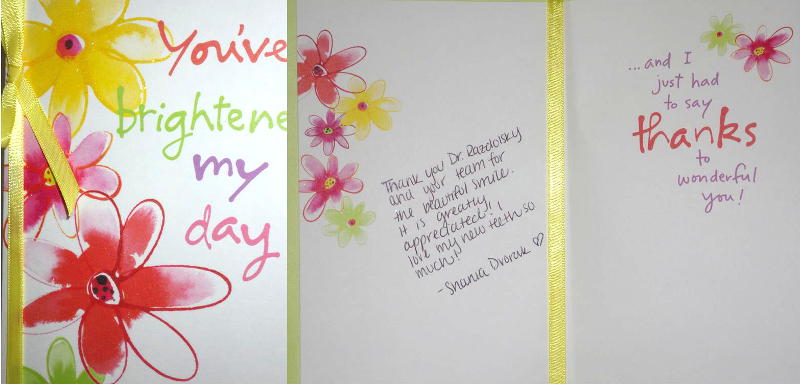 You've
brightene
my
day
Thank you Dr. Razdolsky
and your team for
the beautiful smile.
It is greatly
appreciated! I
love my new teeth so
much!
-Shania Dvorak ♡
...and I
just had
to say
thanks
to
wonderful
you!